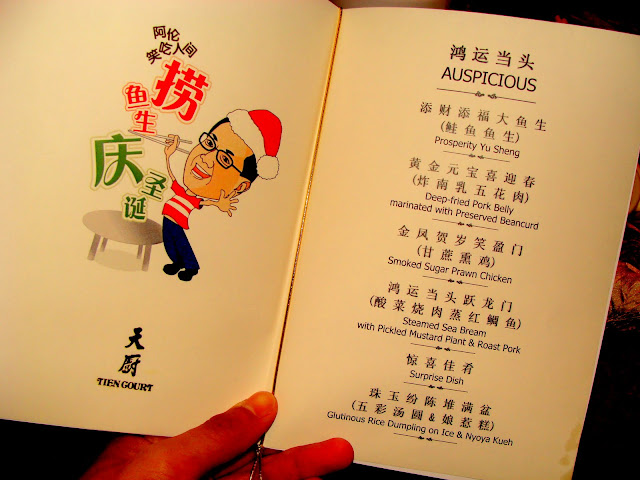 阿伦
笑吃人间
捞
鱼
生
庆
圣
诞
天
厨
TIEN COURT
鸿运当头
AUSPICIOUS
添财添福大鱼生
(鲑鱼鱼生)
Prosperity Yu Sheng
黄金元宝喜迎春
(炸南乳五花肉)
Deep-fried Pork Belly
marinated with Preserved Beancurd
金凤贺岁笑盈门
(甘蔗熏鸡)
Smoked Sugar Prawn Chicken
鸿运当头跃龙门
(酸菜烧肉蒸红鲷鱼)
Steamed Sea Bream
with Pickled Mustard Plant & Roast Pork
惊喜佳肴
Surprise Dish
珠玉纷陈堆满盆
(五彩汤圆&娘惹糕)
Glutinous Rice Dumpling on Ice & Nyoya Kueh